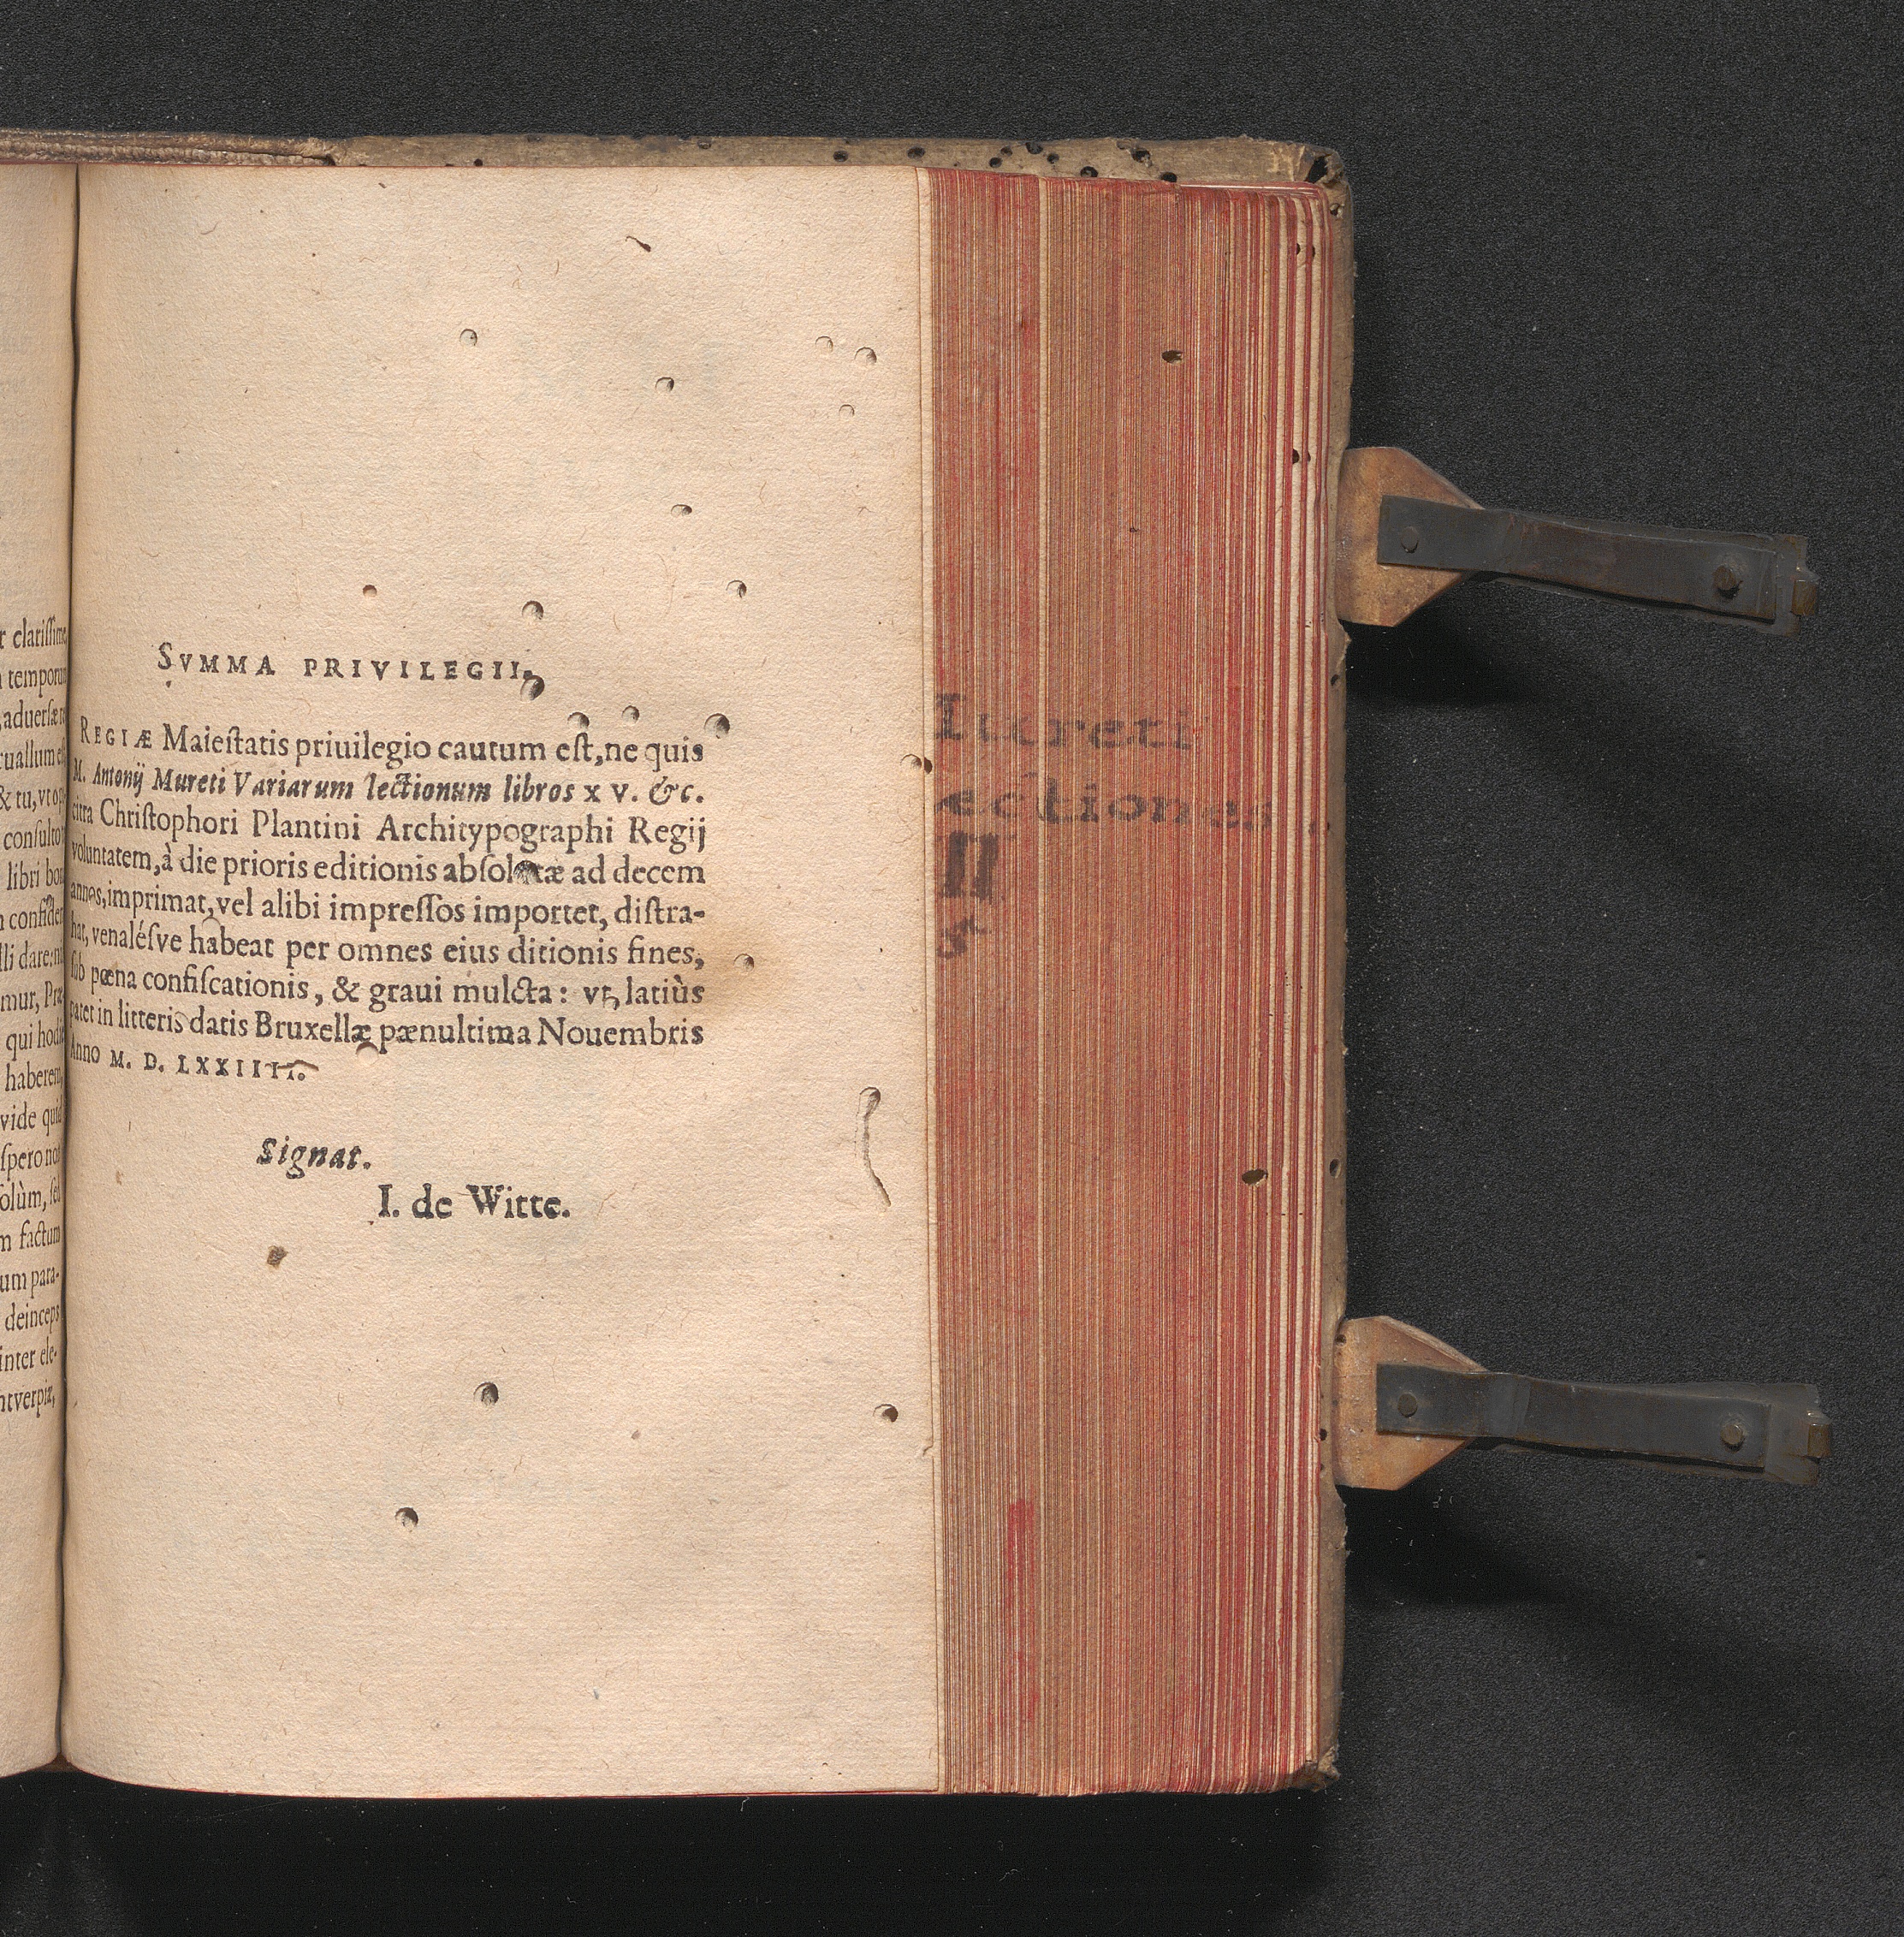 r clariſſime
temporum
aduerſæ
& tu, vt
conſulto
libri
confider
mur, Præ
qui hodie
haberem
vide quid
ſpero non
ſolùm, ſed
m factum
um para-
deinceps
inter ele-
ntverpiæ,
SVMMA PRIVILEGII.
REGIÆ Maieſtatis priuilegio cautum eſt, ne quis
M. Antonij Mureti Variarum lectionum libros XV. &c.
citra Chriſtophori Plantini Architypographi Regij
voluntatem, à die prioris editionis abſolutæ ad decem
annos, imprimat, vel alibi impreſſos importet, diſtra-
hat, venaléſve habeat per omnes eius ditionis fines,
ſub pœna confiſcationis, & graui mulcta: vt latiùs
patet in litteris datis Bruxellæ pænultima Nouembris
Anno M. D. LXXIIII.
Signat.
I. de Witte.
ureti
ectiones